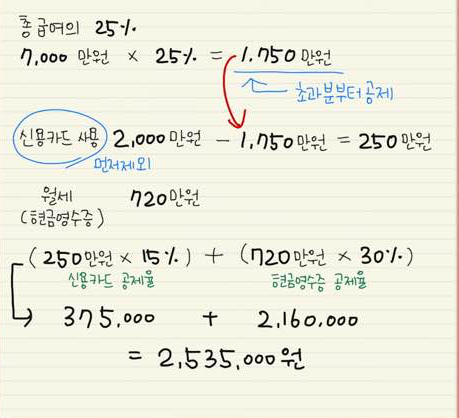 총급여의 25%
7,000 만원 × 25% = 1.750 만원
초과분부터 공제
신용카드 사용 2,000만원 - 1,750만원 = 250만원
먼저제외
월세 720만원
(현금영수증)
(250만원 × 15%) + (720만원 × 30%)
신용카드 공제율 현금영수증 공제율
375,000 + 2,160,000
= 2,535,000원